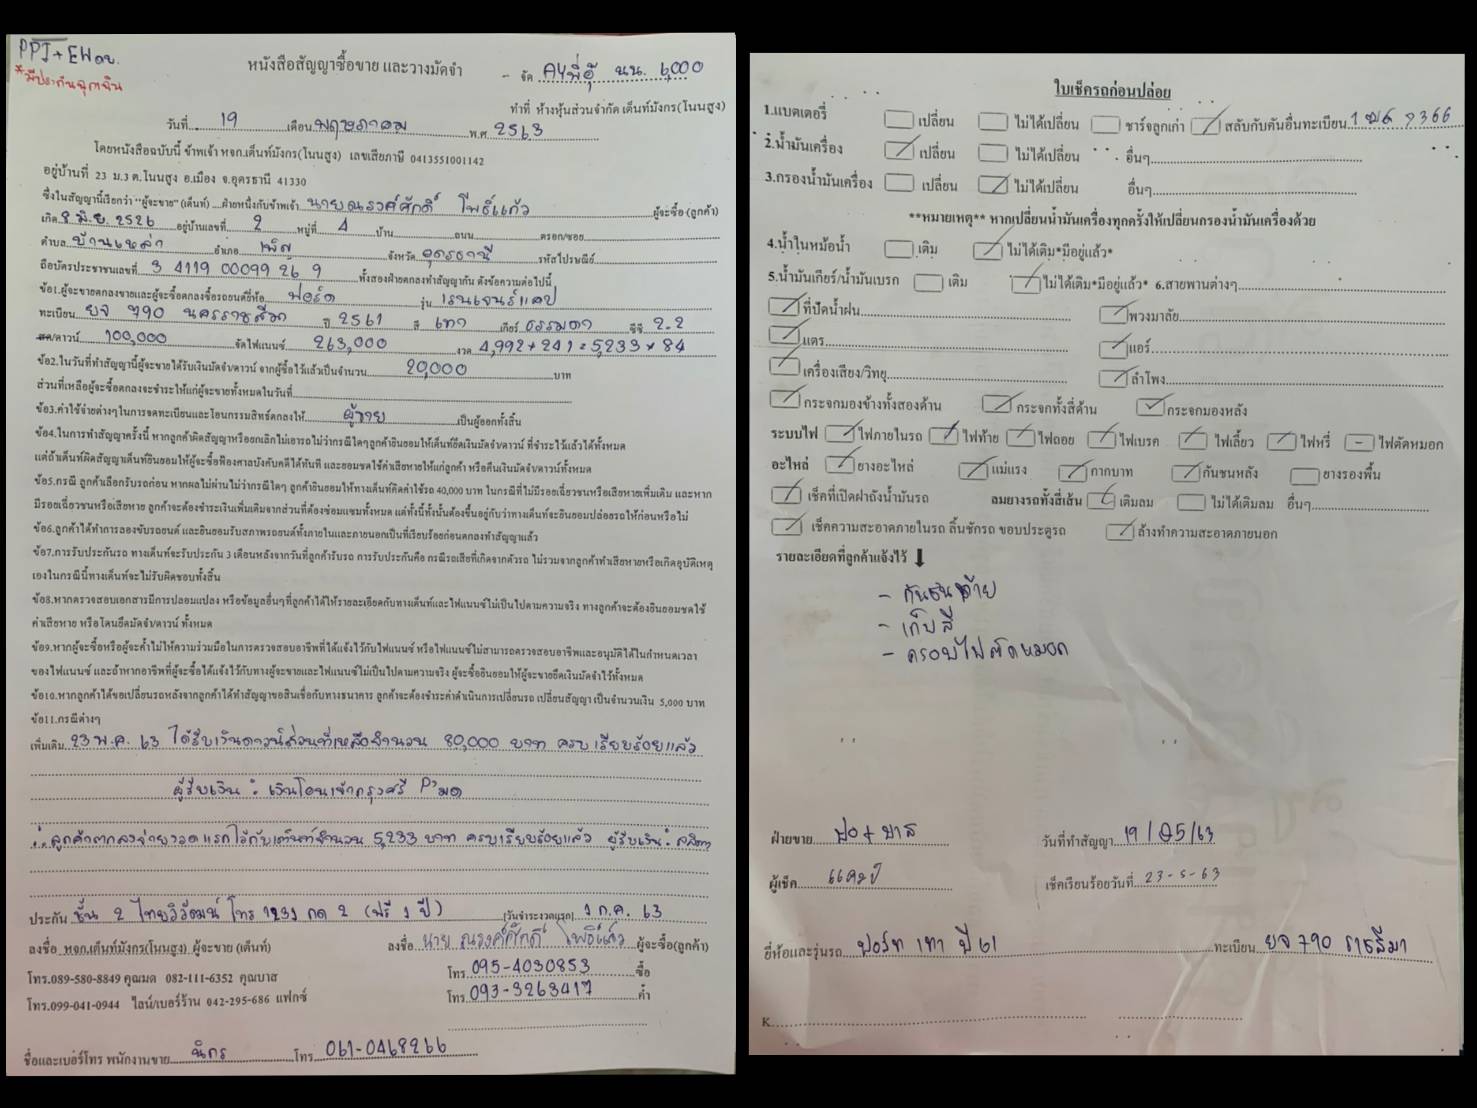 PPI + EW อย.
*มีประกันฉุกเฉิน
หนังสือสัญญาซื้อขาย และวางมัดจำ
- จัด AYพี่อุ้ นน. 6,000
ทำที่ ห้างหุ้นส่วนจำกัด เต็นท์มังกร(โนนสูง)
วันที่ 19 เดือน พฤษภาคม พ.ศ. 2563
โดยหนังสือฉบับนี้ ข้าพเจ้า หจก.เต็นท์มังกร(โนนสูง) เลขเสียภาษี 0413551001142
อยู่บ้านที่ 23 ม.3 ต.โนนสูง อ.เมือง จ.อุดรธานี 41330
ซึ่งในสัญญานี้เรียกว่า "ผู้จะขาย" (เต็นท์) ....ฝ่ายหนึ่งกับข้าพเจ้า นายณรงค์ศักดิ์ โพธิ์แก้ว ผู้จะซื้อ (ลูกค้า)
เกิด 8 มิ.ย. 2526 อยู่บ้านเลขที่ 2 หมู่ที่ 4 บ้าน ถนน ตรอก/ซอย
ตำบล บ้านเหล่า อำเภอ เพ็ญ จังหวัด อุดรธานี รหัสไปรษณีย์
ถือบัตรประชาชนเลขที่ 3 4119 00099 26 9 ทั้งสองฝ่ายตกลงทำสัญญากัน ดังข้อความต่อไปนี้
ข้อ1.ผู้จะขายตกลงขายและผู้จะซื้อตกลงซื้อรถยนต์ยี่ห้อ ฟอร์ด รุ่น เรนเจอร์แคป
ทะเบียน ยจ 790 นครราชสีมา ปี 2561 สี เทา เกียร์ ธรรมดา ซีซี 2.2
สด/ดาวน์ 100,000 จัดไฟแนนซ์ 263,000 งวด 4,992+241=5,233 × 84
ข้อ2.ในวันที่ทำสัญญานี้ผู้จะขายได้รับเงินมัดจำ/ดาวน์ จากผู้ซื้อไว้แล้วเป็นจำนวน 20,000 บาท
ส่วนที่เหลือผู้จะซื้อตกลงจะชำระให้แก่ผู้จะขายทั้งหมดในวันที่
ข้อ3.ค่าใช้จ่ายต่างๆในการจดทะเบียนและโอนกรรมสิทธิ์ตกลงให้ ผู้ขาย เป็นผู้ออกทั้งสิ้น
ข้อ4.ในการทำสัญญาครั้งนี้ หากลูกค้าผิดสัญญาหรือยกเลิกไม่เอารถไม่ว่ากรณีใดๆลูกค้ายินยอมให้เต็นท์ยึดเงินมัดจำ/ดาวน์ ที่ชำระไว้แล้วได้ทั้งหมด
แต่ถ้าเต็นท์ผิดสัญญาเต็นท์ยินยอมให้ผู้จะซื้อฟ้องศาลบังคับคดีได้ทันที และยอมชดใช้ค่าเสียหายให้แก่ลูกค้า หรือคืนเงินมัดจำ/ดาวน์ทั้งหมด
ข้อ5.กรณี ลูกค้าเลือกรับรถก่อน หากผลไม่ผ่านไม่ว่ากรณีใดๆ ลูกค้ายินยอมให้ทางเต็นท์คิดค่าใช้รถ 40,000 บาท ในกรณีที่ไม่มีรอยเฉี่ยวชนหรือเสียหายเพิ่มเติม และหาก
มีรอยเฉี่ยวชนหรือเสียหาย ลูกค้าจะต้องชำระเงินเพิ่มเติมจากส่วนที่ต้องซ่อมแซมทั้งหมด แต่ทั้งนี้ทั้งนั้นต้องขึ้นอยู่กับว่าทางเต็นท์จะยินยอมปล่อยรถให้ก่อนหรือไม่
ข้อ6.ลูกค้าได้ทำการลองขับรถยนต์ และยินยอมรับสภาพรถยนต์ทั้งภายในและภายนอกเป็นที่เรียบร้อยก่อนตกลงทำสัญญาแล้ว
ข้อ7.การรับประกันรถ ทางเต็นท์จะรับประกัน 3 เดือนหลังจากวันที่ลูกค้ารับรถ การรับประกันคือ กรณีรถเสียที่เกิดจากตัวรถ ไม่รวมจากลูกค้าทำเสียหายหรือเกิดอุบัติเหตุ
เองในกรณีนี้ทางเต็นท์จะไม่รับผิดชอบทั้งสิ้น
ข้อ8.หากตรวจสอบเอกสารมีการปลอมแปลง หรือข้อมูลอื่นๆที่ลูกค้าได้ให้รายละเอียดกับทางเต็นท์และไฟแนนซ์ไม่เป็นไปตามความจริง ทางลูกค้าจะต้องยินยอมชดใช้
ค่าเสียหาย หรือโดนยึดมัดจำ/ดาวน์ ทั้งหมด
ข้อ9.หากผู้จะซื้อหรือผู้จะค้ำไม่ให้ความร่วมมือในการตรวจสอบอาชีพที่ได้แจ้งไว้กับไฟแนนซ์ หรือไฟแนนซ์ไม่สามารถตรวจสอบอาชีพและอนุมัติได้ในกำหนดเวลา
ของไฟแนนซ์ และถ้าหากอาชีพที่ผู้จะซื้อได้แจ้งไว้กับทางผู้จะขายและไฟแนนซ์ไม่เป็นไปตามความจริง ผู้จะซื้อยินยอมให้ผู้จะขายยึดเงินมัดจำไว้ทั้งหมด
ข้อ10.หากลูกค้าได้ขอเปลี่ยนรถหลังจากลูกค้าได้ทำสัญญาขอสินเชื่อกับทางธนาคาร ลูกค้าจะต้องชำระค่าดำเนินการเปลี่ยนรถ เปลี่ยนสัญญา เป็นจำนวนเงิน 5,000 บาท
ข้อ11.กรณีต่างๆ
เพิ่มเติม 23 พ.ค. 63 ได้รับเงินดาวน์ส่วนที่เหลือจำนวน 80,000 บาท ครบเรียบร้อยแล้ว
ผู้รับเงิน : เงินโอนเข้ากรุงศรี P'มด
ลูกค้าตกลงจ่ายงวดแรกไว้กับเต็นท์จำนวน 5,233 บาท ครบเรียบร้อยแล้ว ผู้รับเงิน :
ประกัน ชั้น 2 ไทยวิวัฒน์ โทร 1231 กด 2 (ฟรี 1 ปี) [วันชำระงวดแรก] 1 ก.ค. 63
ลงชื่อ หจก.เต็นท์มังกร(โนนสูง) ผู้จะขาย (เต็นท์) ลงชื่อ นาย ณรงค์ศักดิ์ โพธิ์แก้ว ผู้จะซื้อ(ลูกค้า)
โทร.089-580-8849 คุณมด 082-111-6352 คุณบาส โทร. 095-4030853 ซื้อ
โทร.099-041-0944 ไลน์/เบอร์ร้าน 042-295-686 แฟกซ์ โทร. 093-3263417 ค้ำ
ชื่อและเบอร์โทร พนักงานขาย นิกร โทร 061-0468266
ใบเช็ครถก่อนปล่อย
1.แบตเตอรี่ เปลี่ยน ไม่ได้เปลี่ยน ชาร์จลูกเก่า สลับกับคันอื่นทะเบียน 1 ฒฌ 7366
2.น้ำมันเครื่อง เปลี่ยน ไม่ได้เปลี่ยน อื่นๆ
3.กรองน้ำมันเครื่อง เปลี่ยน ไม่ได้เปลี่ยน อื่นๆ
**หมายเหตุ** หากเปลี่ยนน้ำมันเครื่องทุกครั้งให้เปลี่ยนกรองน้ำมันเครื่องด้วย
4.น้ำในหม้อน้ำ เติม ไม่ได้เติม*มีอยู่แล้ว*
5.น้ำมันเกียร์/น้ำมันเบรก เติม ไม่ได้เติม*มีอยู่แล้ว* 6.สายพานต่างๆ
ที่ปัดน้ำฝน พวงมาลัย
แตร แอร์
เครื่องเสียง/วิทยุ ลำโพง
กระจกมองข้างทั้งสองด้าน กระจกทั้งสี่ด้าน กระจกมองหลัง
ระบบไฟ ไฟภายในรถ ไฟท้าย ไฟถอย ไฟเบรค ไฟเลี้ยว ไฟหรี่ ไฟตัดหมอก
อะไหล่ ยางอะไหล่ แม่แรง กากบาท กันชนหลัง ยางรองพื้น
เช็คที่เปิดฝาถังน้ำมันรถ ลมยางรถทั้งสี่เส้น เติมลม ไม่ได้เติมลม อื่นๆ
เช็คความสะอาดภายในรถ ลิ้นชักรถ ขอบประตูรถ ล้างทำความสะอาดภายนอก
รายละเอียดที่ลูกค้าแจ้งไว้
- กันชนท้าย
- เก็บสี
- ครอบไฟตัดหมอก
ฝ่ายขาย ฟอ+บาส วันที่ทำสัญญา 19/05/63
ผู้เช็ค เช็คเรียบร้อยวันที่ 23-5-63
ยี่ห้อและรุ่นรถ ฟอร์ท เทา ปี 61 ทะเบียน ยจ 790 ราชสีมา
K